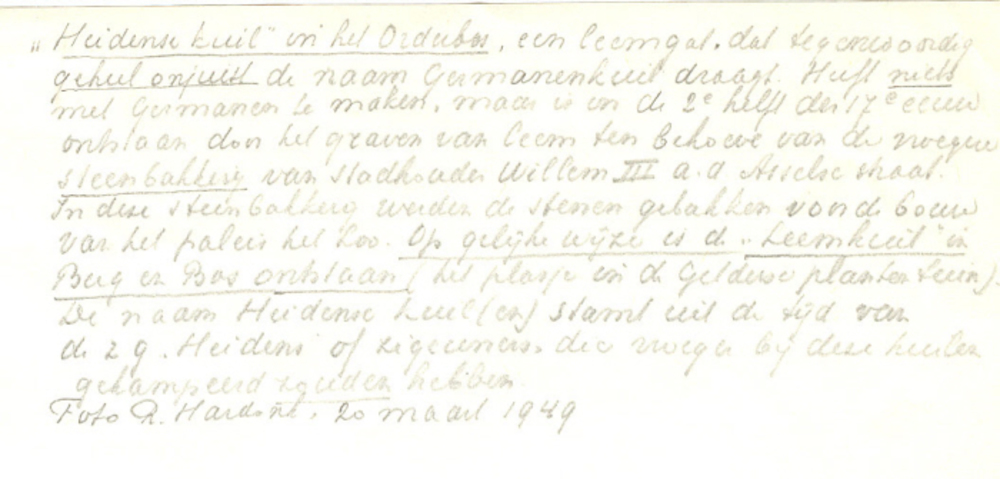 „Heidense kuil" in het Orderbos, een leemgat, dat tegenwoordig
geheel onjuist de naam Germanenkuil draagt. Heeft niets
met Germanen te maken, maar is in de 2e helft der 17e eeuw
ontstaan door het graven van leem ten behoeve van de vroegere
steenbakkerij van stadhouder Willem III a.d Asselse straat.
In deze steenbakkerij werden de stenen gebakken voor de bouw
van het paleis het Loo. Op gelijke wijze is de „Leemkuil" in
Berg en Bos ontstaan (het plasje in de Gelderse plantentuin).
De naam Heidense kuil(en) stamt uit de tijd van
de z g. Heidens of zigeuners, die vroeger bij deze kuilen
gekampeerd zouden hebben.
Foto R. Hardonk, 20 maart 1949